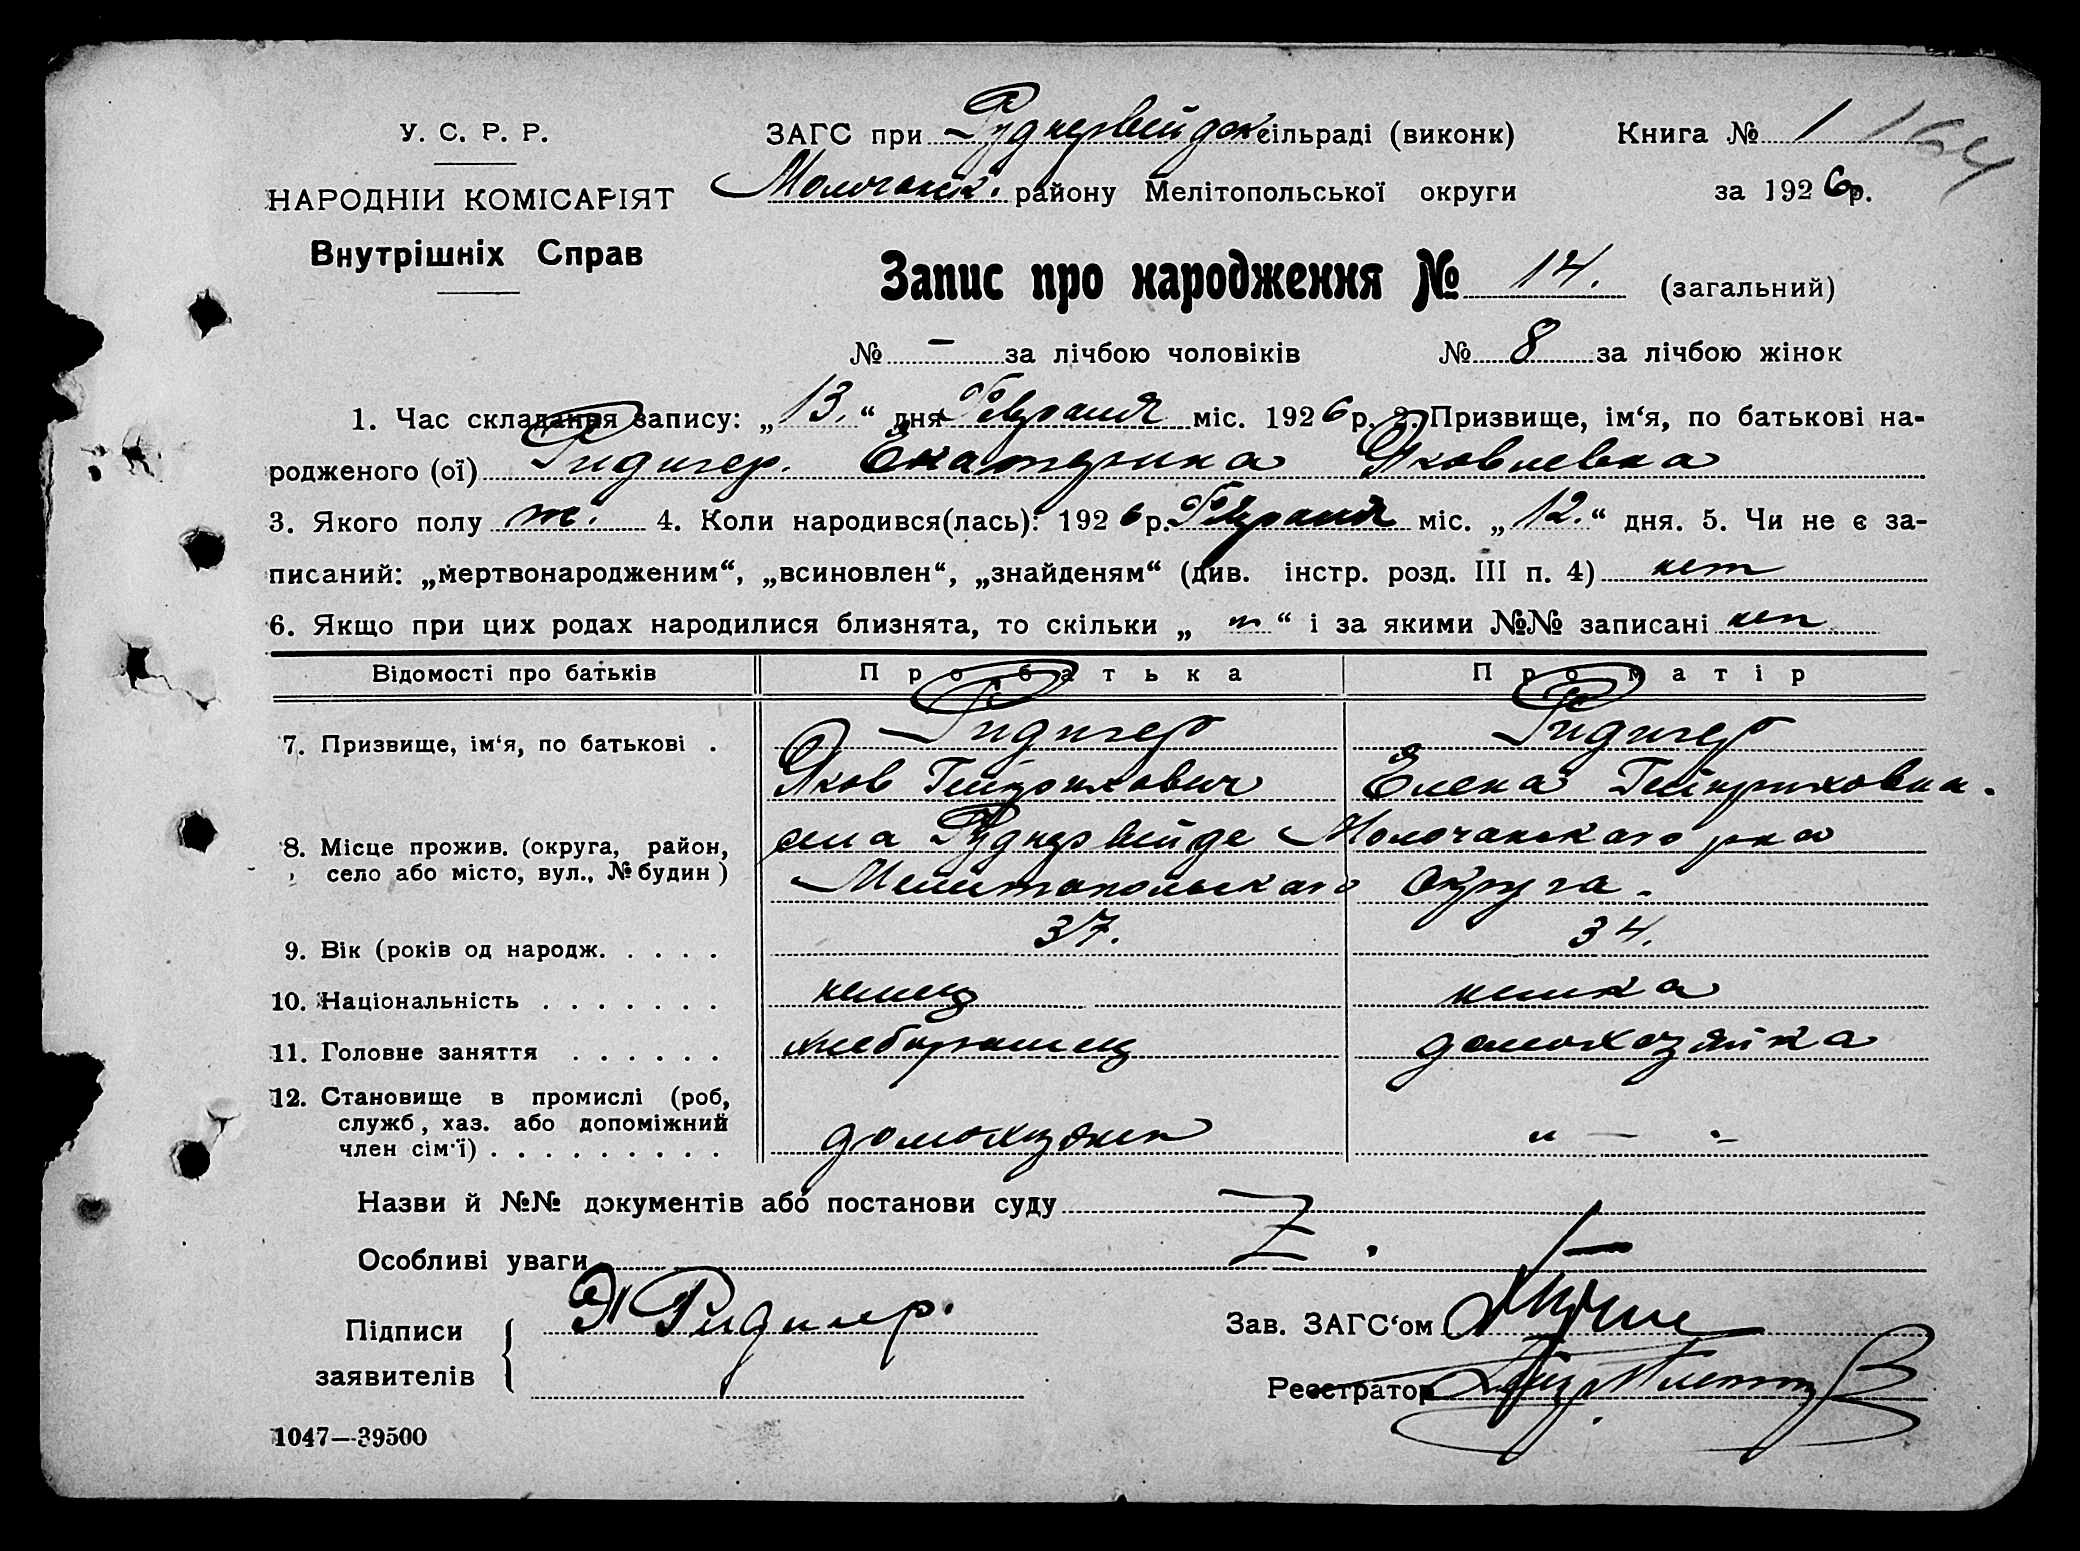 У. С. Р. Р.
НАРОДНІЙ КОМІСАРІЯТ
Внутрішніх Справ
ЗАГС при Руднервейдск сільраді (виконк) Книга № 1 164
Молочанск. району Мелітопольської округи за 1926р.
Запис про народження № 14. (загальний)
№ - за лічбою чоловіків № 8 за лічбою жінок
1. Час складання запису: „13.“ дня Февраля міс. 1926р. 2. Призвище, ім‘я, по батькові на-
родженого (ої) Ридигер. Екатерина Яковлевна
3. Якого полу ж. 4. Коли народився(лась): 1926р. Февраля міс. „12.“ дня. 5. Чи не є за-
писаний: „мертвонародженим“, „всиновлен“, „знайденям“ (див. інстр. розд. III п. 4) нет
6. Якщо при цих родах народилися близнята, то скільки „ “ і за якими №№ записані нет
Відомості про батьків Про батька Про матір
7. Призвище, ім‘я, по батькові . Ридигер Ридигер
Яков Гейнрихович Елена Гейнриховна.
8. Місце прожив. (округа, район, село або місто, вул., № будин) села Руднервейде Молочанского рна
Мелитопольского Округа.
9. Вік (років од народж. . . . . 37. 34.
10. Національність . . . . . . . немец немка
11. Головне заняття . . . . . . хлебопашец домохозяйка
12. Становище в промислі (роб,
служб, хаз. або допоміжний
член сім‘ї) . . . . . . . . . домохозяин „ — „ –
Назви й №№ документів або постанови суду
Особливі уваги Z .
Підписи
заявителів { Я Ридигер.
Зав. ЗАГС‘ом
Реєстратор
1047—39500